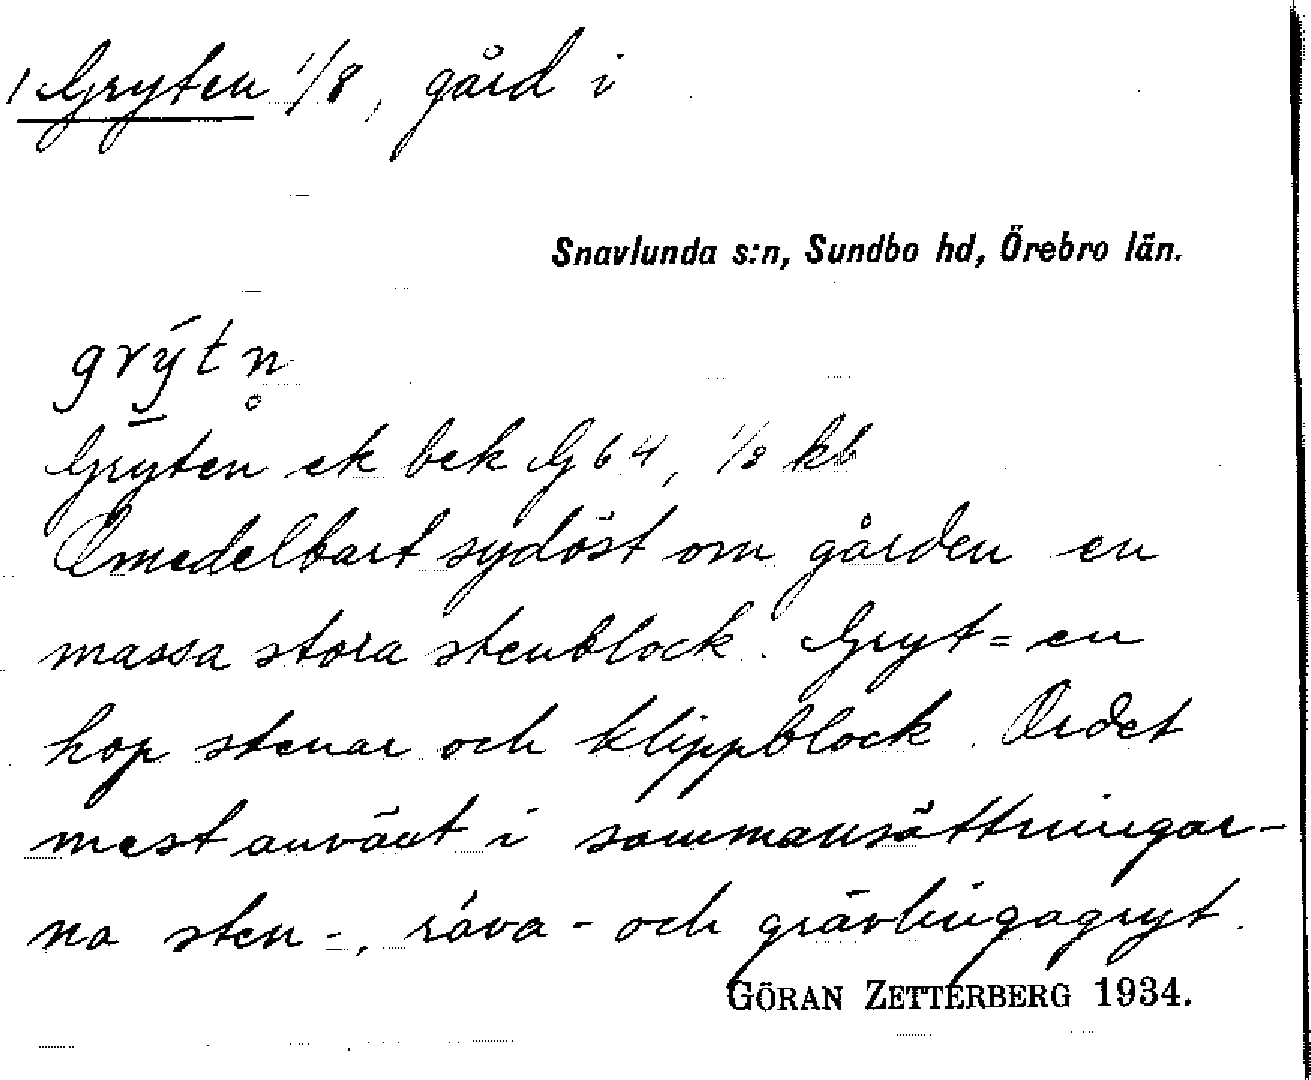 1 Gryten 1/8, gård i
Snavlunda s:n, Sundbo hd, Örebro län.
grýtn̥
Gryten ek bek G 64, 1/8 kb
Omedelbart sydöst om gården en
massa stora stenblock. Gryt = en
hop stenar och klippblock. Ordet
mest använt i sammansättningar-
na sten-, räva- och grävlingagryt.
GÖRAN ZETTERBERG 1934.